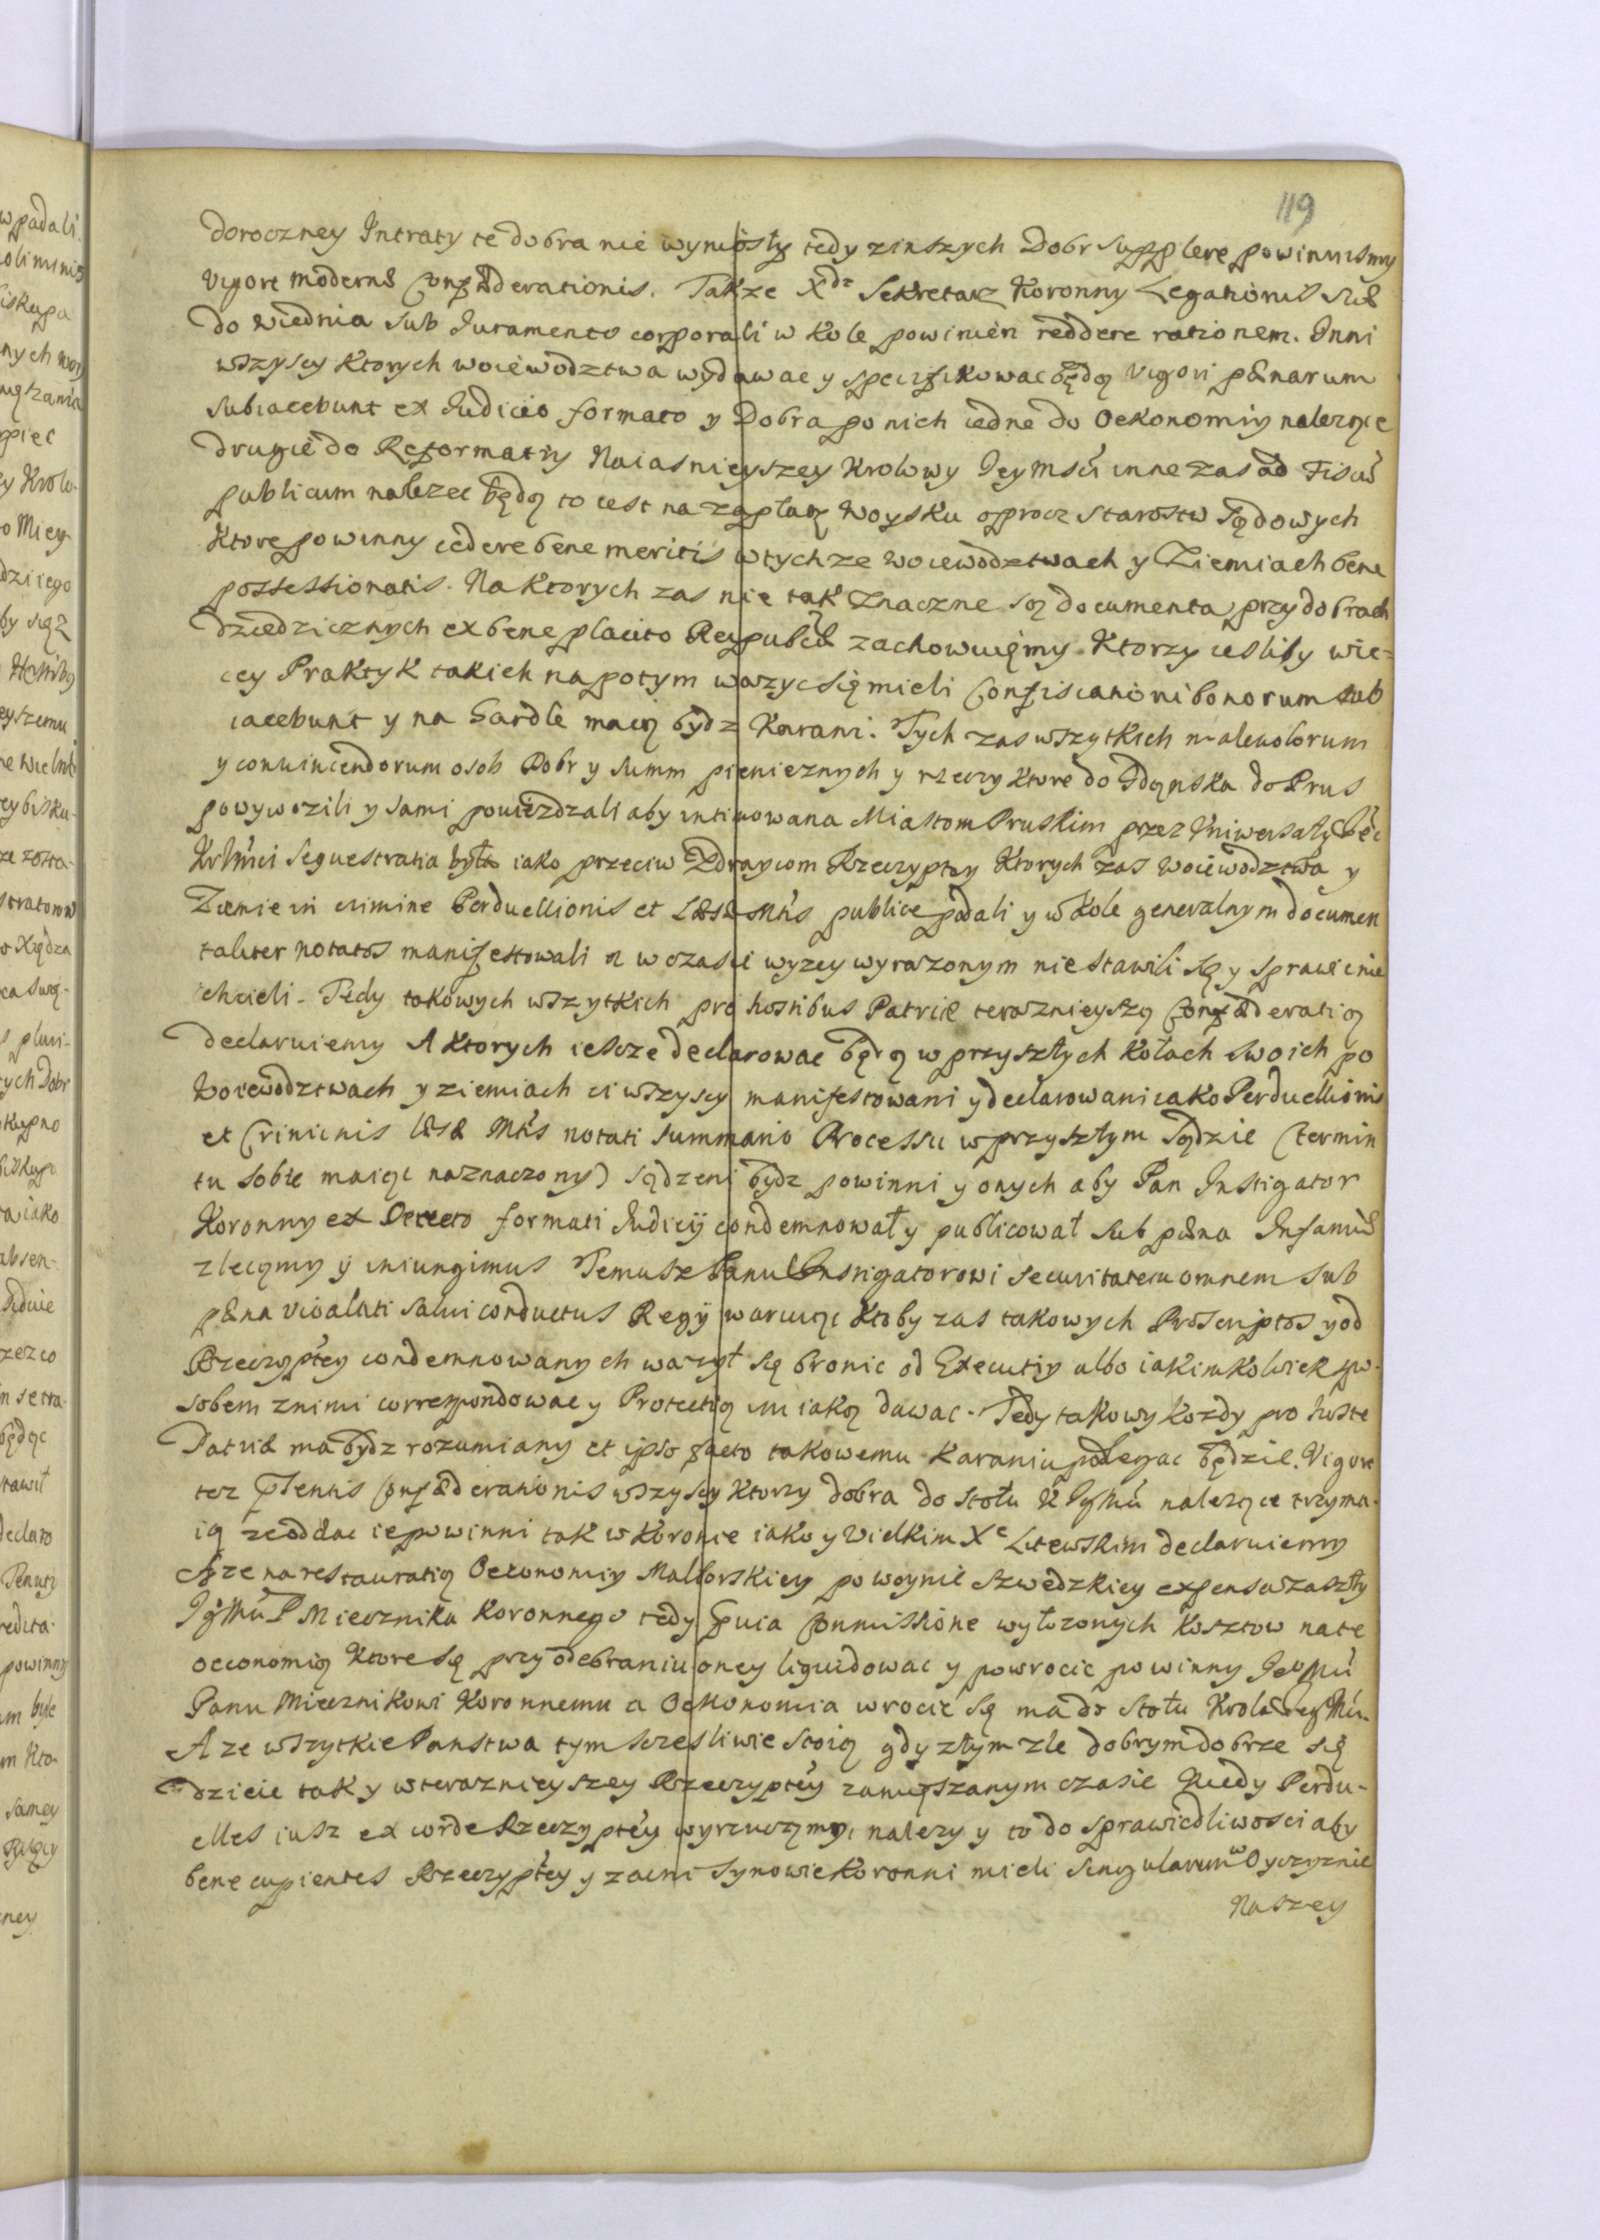 119
doroczney Intraty te dobra nie wyniosły tedy z inszych Dobr supplere powinnismy
vigore modernæ Confæderationis. Takze Xdz Sekretarz Koronny Legationis suæ
do Wiednia sub Iuramento corporali w Kole powinien reddere rationem. Inni
wszyscy Ktorych woiewodztwa wydawac y specifikowac będą vigori pænarum
subiacebunt ex Iudicio formato y Dobra po nich iedne do Oekonomiy nalezące
drugie do Reformatiy Naiasnieyszey Krolowy Ieymsci inne zas ad Fiscū
publicum nalezec będą to iest na zapłatę Woysku oprocz Starostw Sądowych
Ktore powinny cedere bene meritis w tychze woiewodztwach y Ziemiach bene
possessionatis. Na Ktorych zas nie tak Znaczne są documenta przy dobrach
dziedzicznych ex beneplacito Reipublicæ zachowuięmy. Ktorzy iesliby wie=
cey Praktyk takich napotym wazyc się mieli Confiscationi bonorum sub
iacebunt y na Gardle maią bydz Karani. Tych zas wszytkich malevolorum
y convincendorum osob Dobr y summ pieniecznych y rzeczy Ktore do Gdąnska do Prus
powywozili y sami powiezdzali aby intimowana Miastom Pruskim przez Vniwersały
Krlmci Sequestratia była iako przeciw Zdraycom Rzeczyptey Ktorych zas Woiewodztwa y
Ziemie in crimine Perduellionis et Læsæ Mtis publice podali y w Kole generalnym documen
taliter notatos manifestowali a w czasie wyzey wyrazonym nie stawili się y sprawic nie
chcieli. Tedy takowych wszytkich pro hostibus Patriæ teraznieyszą Confæderatią
declaruiemy A Ktorych ieszcze declarowac będą w przyszłych Kołach swoich po
Woiewodztwach y ziemiach ci wszyscy manifestowani y declarowani iako Perduellionis
et Criminis læsæ Mtis notati summario Processu w przyszłym Sądzie (termin
tu sobie maiąc naznaczony) sądzeni bydz powinni y onych aby Pan Instigator
Koronny ex Decreto formati Iudicÿ condemnował y publicował sub pæna Infamiæ
zlecamy ÿ iniungimus Temusz Panu Instigatorowi securitatem omnem sub
pæna violati salvi conductus Regÿ waruiąc Ktoby zas takowych Proscriptos y od
Rzeczyptey condemnowanych wazył się bronic od Executiy albo iakimkolwiek spo-
sobem z nimi correspondowac y Protectią im iaką dawac. Tedy takowy Kozdy pro hoste
Patriæ ma bydz rozumiany et ipso facto takowemu Karaniu podlegac będzie. Vigore
tez Pntis Confæderationis wszyscy Ktorzy dobra do Stołu K IgMci nalezące trzyma-
ią ze oddac ie powinni tak w Koronie iako y Wielkim Xe Litewskim declaruiemy
A ze na restauratią Oekonomiy Malborskiey po woynie Szwedzkiey expensa zaszły
IgMci P Miecznika Koronnego tedy Commissione wyłozonych Kosztow na te
oeconomią Ktore się przy odebraniu oney liquidowac y powrocic powinny IeoMci
Panu Miecznikowi Koronnemu a Oekonomia wrocic się ma do Stołu Krola IegMci.
A ze wszytkie Panstwa tym sczesliwie stoią gdy złym zle dobrym dobrze się
dzieie tak y w teraznieyszey Rzeczyptey zamięszanym czasie Kiedy Perdu-
elles iusz ex corde Rzeczyptey wyrzucamy, nalezy y to do sprawiedliwosci aby
bene cupientes Rzeczyptey y zacni Synowie Koronni mieli singularum w Oyczyznie
Naszey